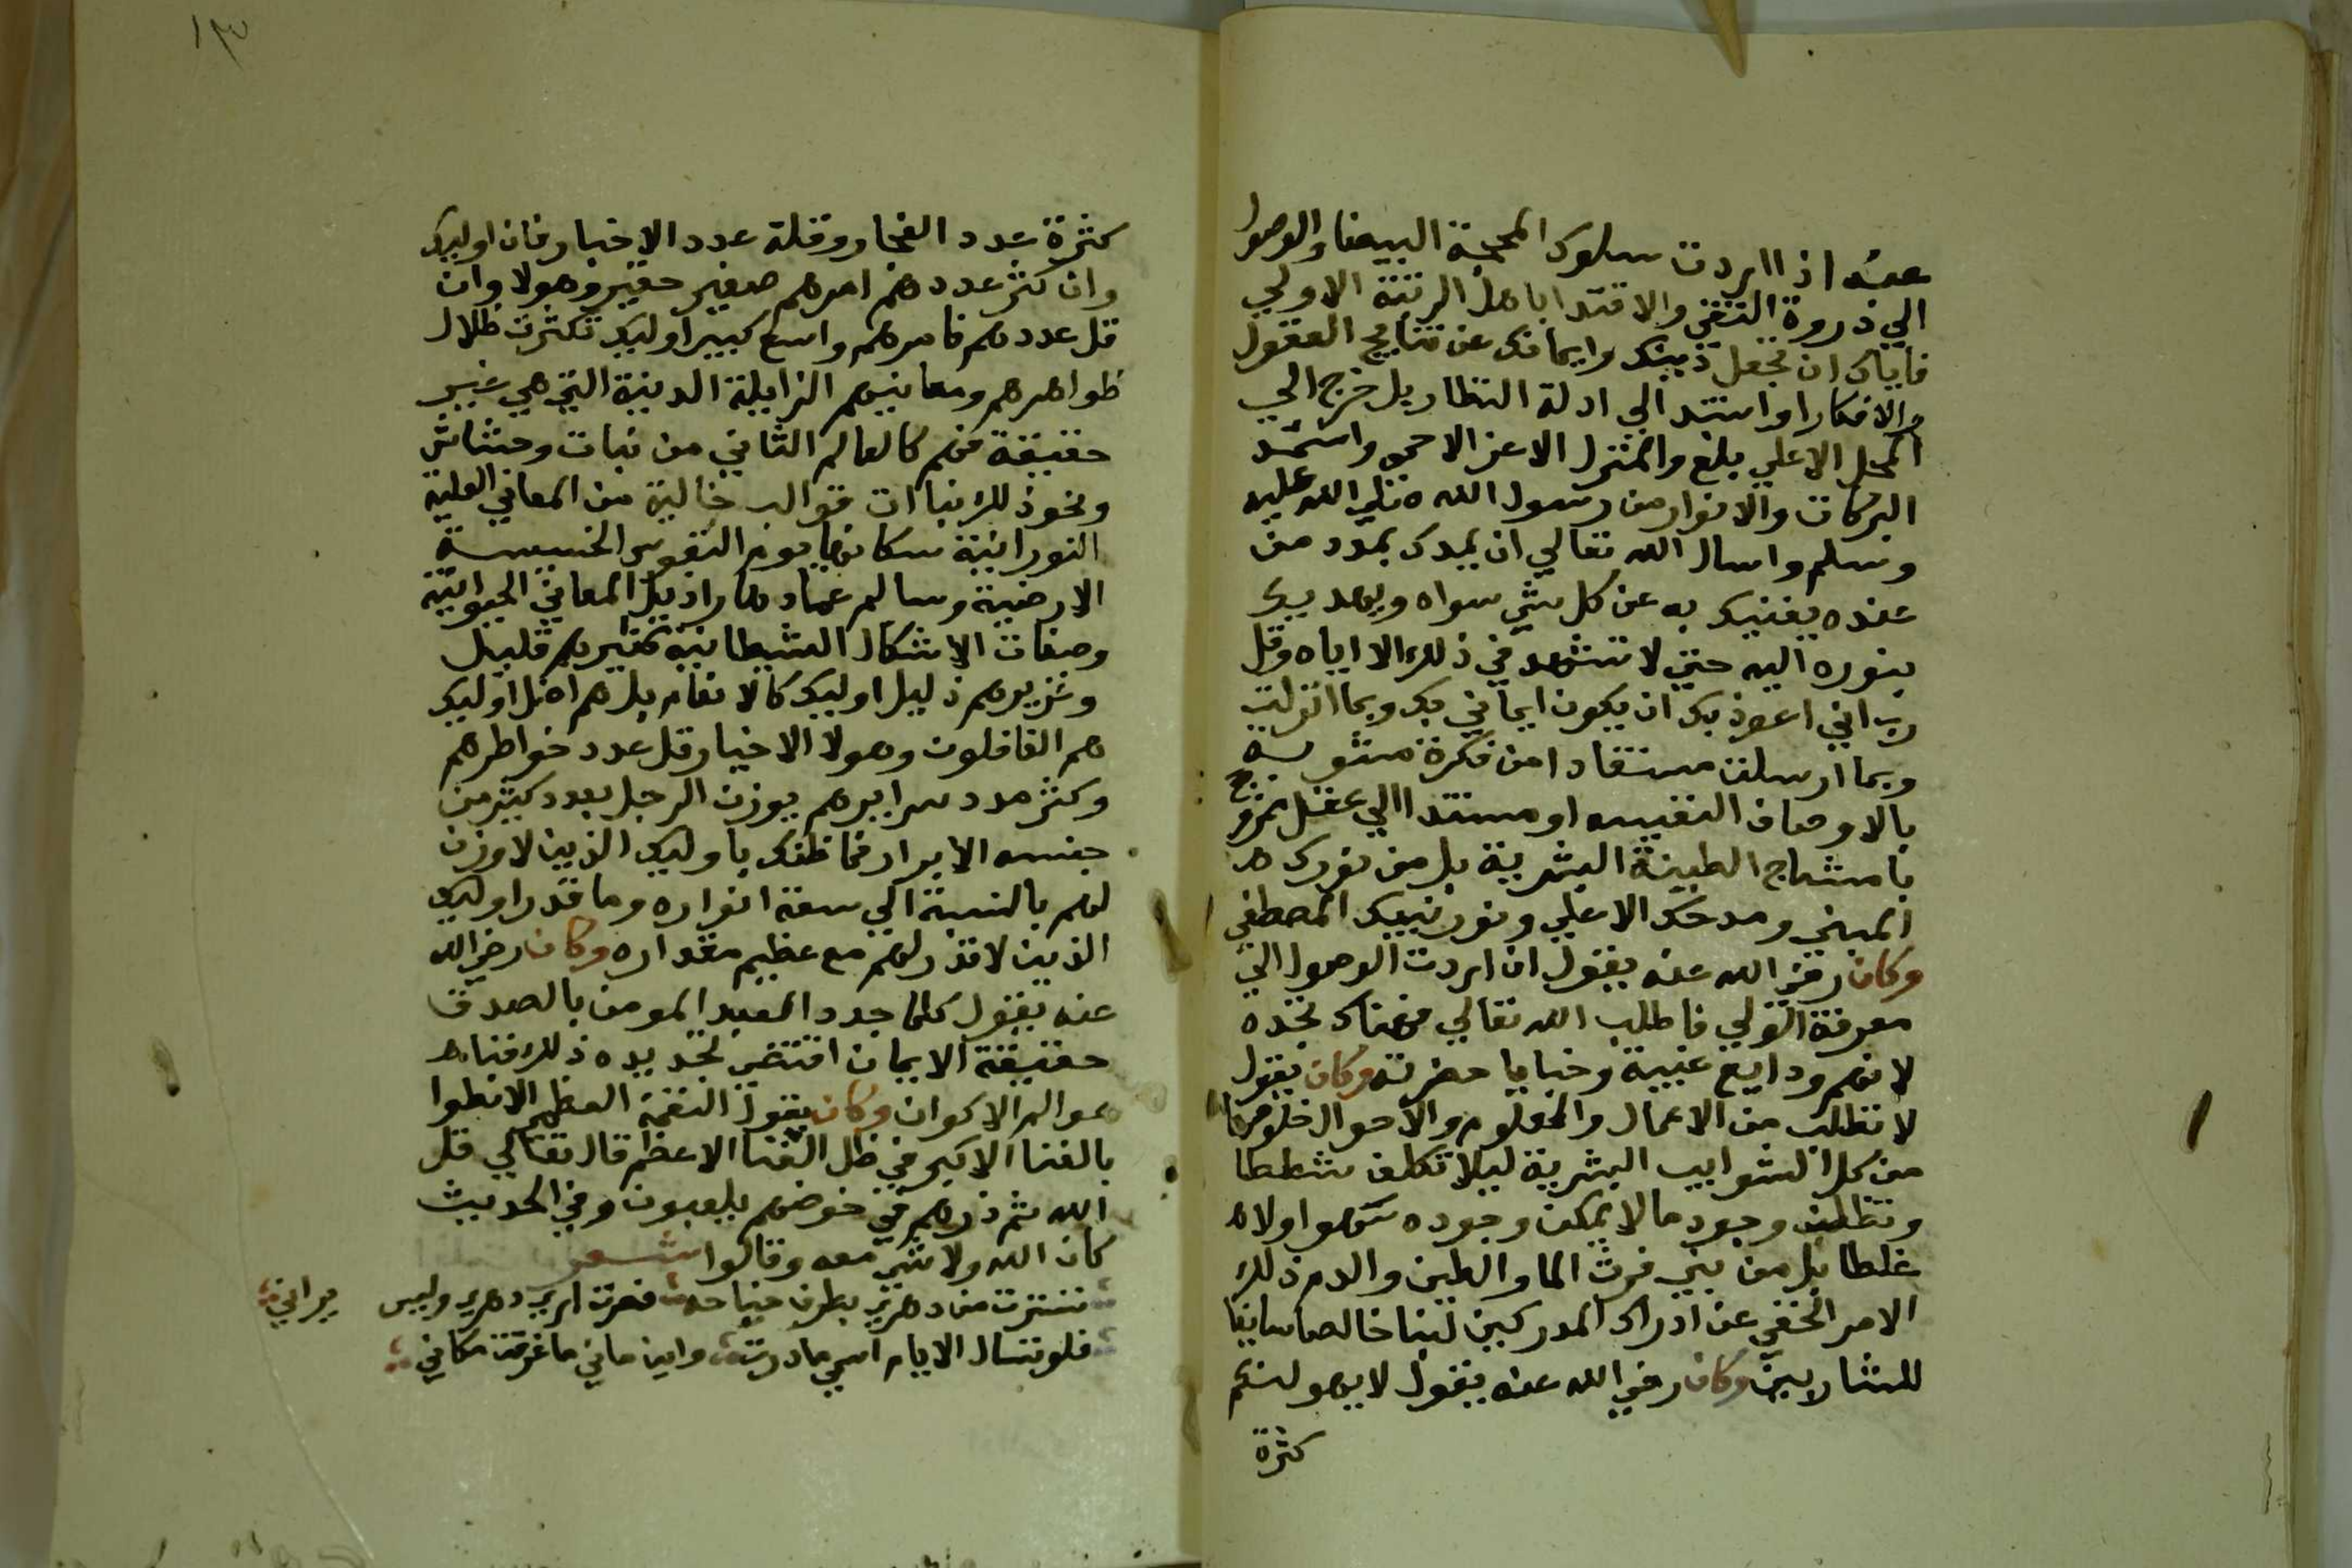 عنه اذا اردت سلوك المحجة البيضا والوصول
الي ذروة التقي والاقتدا باهل الرتبة الاولي
فاياك ان تجعل دينك وايمانك عن نتايج العقول
والافكار او استند الي ادلة النظار بل خرج الي
المحل الاعلي بلغ والمنزل الاعز الاحمي واستمد
البركات والانوار من رسول الله صلي الله عليه
وسلم واسال الله تعالي ان يمدك بمدد من
عنده يغنيك به عن كل شي سواه ويهديك
بنوره اليه حتي لا تشهد في ذلك الا اياه وقل
رب اني اعوذ بك ان يكون ايماني بك وبما انزلت
وبما ارسلت مستفادا من فكرة مشوبة
بالاوصاف النفسيه او مستندا الي عقل ممزوج
بامشاج الطينة البشرية بل من نورك
المبني ومددك الاعلي ونور نبيك المصطفي
وكان رضي الله عنه يقول ان اردت الوصول الي
معرفة الولي فاطلب الله تعالي فهناك تجده
لانهم ودايع غيبية وخبايا حضرته وكان يقول
لا تطلب من الاعمال والعلوم والاحوال خلوصها
من كل الشوايب البشرية ليلا تكلف شططا
وتطلب وجود ما لا يمكن وجوده سهوا ولا
غلطا بل من بين فرث الما والطين والدم ذلك
الامر الخفي عن ادراك المدركين لبنا خالصا سايغا
للشاربين وكان رضي الله عنه يقول لا يهولنكم
كثرة
١٣
كثرة عدد الفجار وقلة عدد الاخيار فان اوليك
وان كثر عددهم امرهم صغير حقير وهولا وان
قل عددهم فامرهم واسع كبير اوليك تكثرت ظلال
ظواهرهم ومعانيهم الزايلة الدنية التي هي غير
حقيقة فهم كالعالم الثاني من نبات وحشاش
ونحو ذلك نباتات قوالب خالية من المعاني العلية
النورانية سكانها يوم النفوس الخسيسة
الارضية وسالم عمادها رازيل المعاني الحيوانية
وصفات الاشكال الشيطانية كثيرهم قليل
وعزيزهم ذليل اوليك كالانعام بل هم اضل اوليك
هم الغافلون وهولا الاخيار قل عدد خواطرهم
وكثر مدد سرايرهم يوزن الرجل بعدد كثير من
جنسه الابرار فما ظنك باوليك الذين لا وزن
لهم بالنسبة الي سعة انواره وما قدر اوليك
الذين لا قدر لهم مع عظيم مقداره وكان رضي الله
عنه يقول كلما جدد العبد المومن بالصدق
حقيقة الايمان اقتضي تجديده ذلك فنا
عوالم الاكوان وكان يقول النعمة العظمي الانطوا
بالفنا الاكبر في ظل الغنا الاعظم قال تعالي قل
الله ثم ذرهم في خوضهم يلعبون وفي الحديث
كان الله ولا شي معه وقالوا شعر
تسترت من دهري بطرف جناحه فصرت اري دهري وليس يراني
فلو تسال الايام اسمي ما درت واين مكاني ما عرفت مكاني